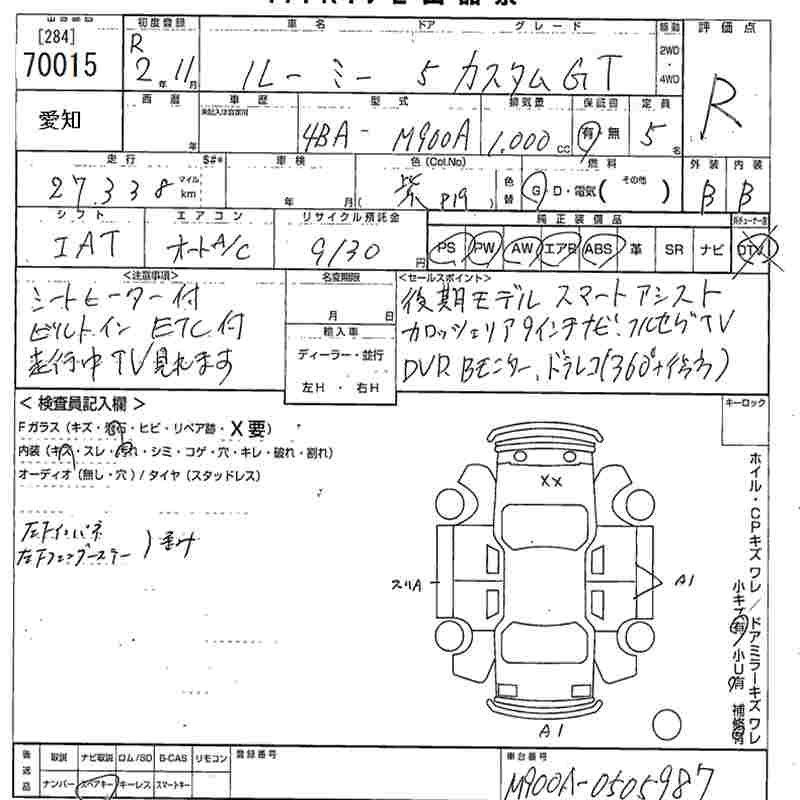 [284]
70015
初度登録 車名 ドア グレード 駆動 評価点
R 2年 11月 ルーミー 5 カスタムGT 2WD・4WD R
愛知
西暦 車歴 型式 排気量 保証書 定員
年 未記入は自家用 4BA-M900A 1,000cc 有・無 5名
走行 S#* 車検 色(Col.No) 燃料 外装 内装
27,338 マイル km 年 月 紫 P19 色替 G・D・電気(その他) B B
シフト エアコン リサイクル預託金 純正装備品
IAT オートA/C 9130円 PS PW AW エアB ABS 革 SR ナビ
<注意事項> 名変期限 <セールスポイント>
シートヒーター付 月 日 後期モデル スマートアシスト
ビルトイン ETC付 輸入車 カロッツェリア9インチナビ.フルセグTV
走行中TV見れます ディーラー・並行 DVD Bモニター、ドラレコ(360°+イカツウ)
左H・右H
<検査員記入欄> キーロック
Fガラス(キズ・飛石・ヒビ・リペア跡・X要)
内装(キズ・スレ・汚れ・シミ・コゲ・穴・キレ・破れ・割れ)
オーディオ(無し・穴)/タイヤ(スタッドレス)
XX
左Fインパネ
左Fフェンダーステー
スリA A1
A1
ホイル・CPキズ ワレ/ドアミラーキズ ワレ
小キズ有 小U有 補修有
後送品 取説 ナビ取説 ロム/SD B-CAS リモコン 登録番号 車台番号
ナンバー スペアキー キーレス スマートキー M900A-0505987